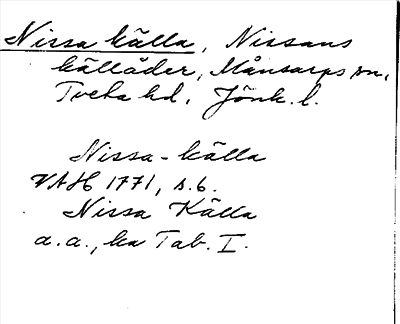 Nissa källa, Nissans
källåder, Månsarps sn,
Tveta hd, Jönk. l.
Nissa-källa
VAH 1771, s. 6.
Nissa Källa
a. a., ka Tab. I.